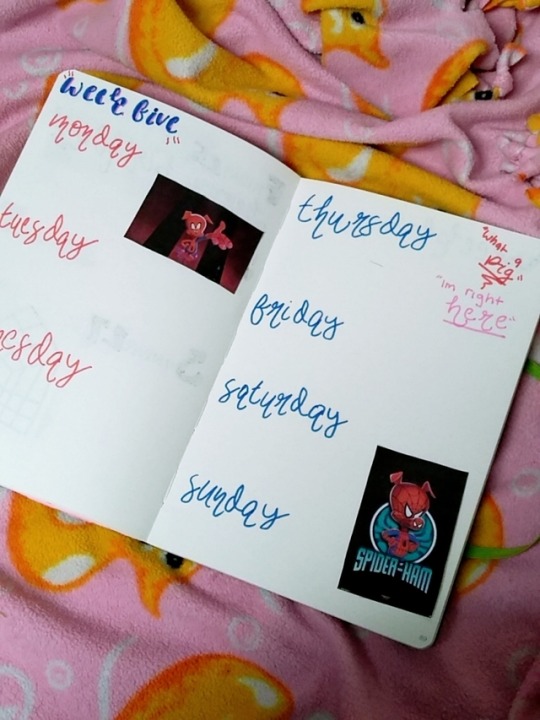 "week five"
monday
tuesday
esday
thursday
"what a
pig"
"im right
here"
friday
saturday
sunday
SPIDER-HAM